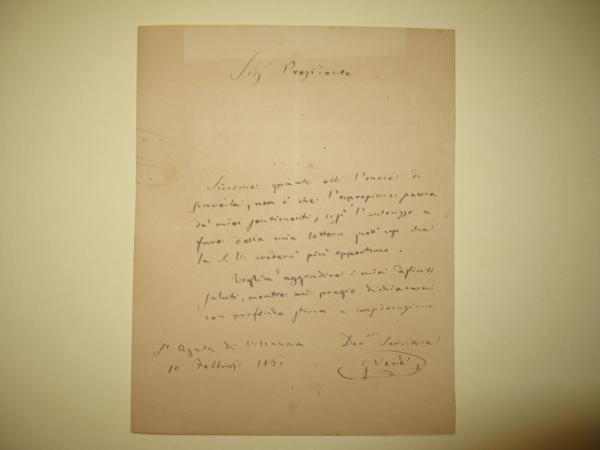 Sig Presidente
Siccome quanto ebbi l'onore di
scriverle, non è che l'espressione
de' miei sentimenti, così l'autorizzo a
fare della mia lettera quell'uso che
la S. V. crederà più opportuno.
Voglia aggradire i miei distinti
saluti, mentre mi pregio dichiararmi
con profonda stima e considerazione
St Agata di Villanova
10 Febbrajo 1861
Dev Servitore
G Verdi